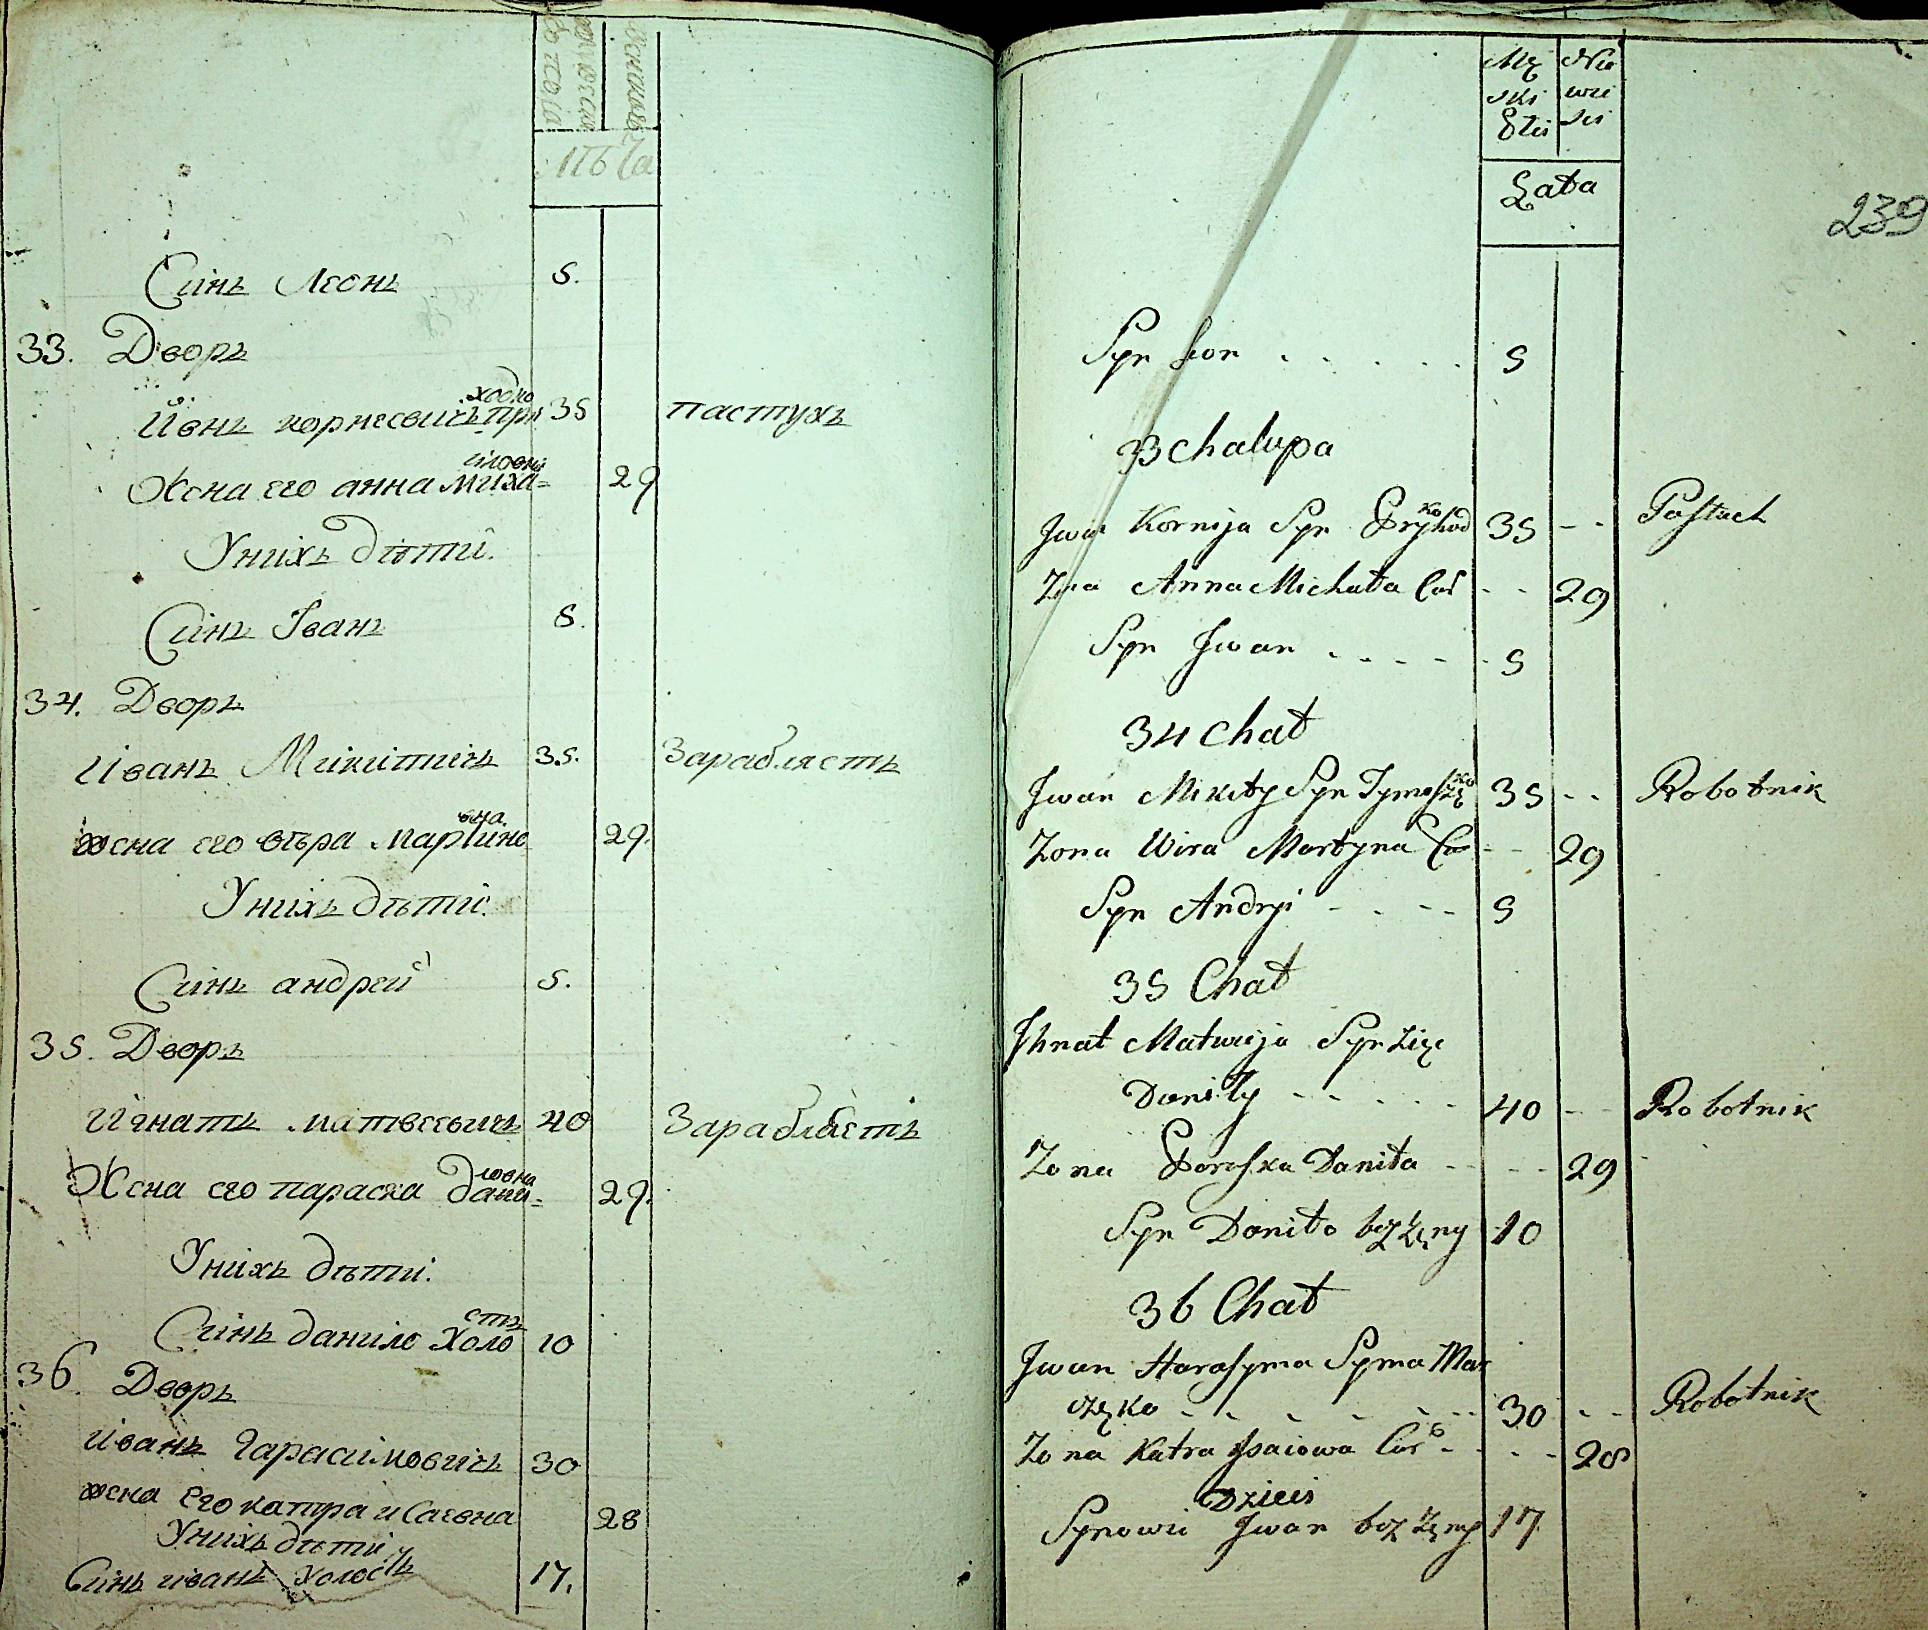 лѣта
Синъ Леонъ 5.
33. Дворъ
Йвнъ корнеевичъ приходко 35 пастухъ
Жена его анна михаиловна 29
Унихъ дѣти.
Синъ Іванъ 5.
34. Дворъ
Иванъ Микитинъ 35. Зарабляетъ
жена его вѣра мартиновна 29.
Унихъ дѣти.
Синъ андрей 5.
35. Дворъ
Игнатъ матвеевичъ 40 Зарабляетъ
Жена его параска даниловна 29.
Унихъ дѣти.
Синъ данило холостъ 10
36. Дворъ
Иванъ Гарасимовичъ 30
жена его катра исаевна 28
Унихъ дѣти.
Синъ иванъ холостъ 17.
Mę Nie
ski wie
Płci sci
Łata
239
Syn Leon 5
33 chalupa
Jwan Kornija Syn Pryhodko 35 Pastuch
Zna Anna Michała Cor 29
Syn Jwan 5
34 Chat
Jwan Mikity Syn Tymoszęko 35 Robotnik
Zona Wira Martyna Cor 29
Syn Andryi 5
35 Chat
Jhnat Matwija Syn Zięc
Daniły 40 Robotnik
Zona Paraska Daniła 29
Syn Daniło bez żęny 10
36 Chat
Jwan Harasyma Syma Mar
częko 30 Robotnik
Zona Katra Jsaiowa Cor 28
Dzieci
Synowie Jwan bez żęny 17